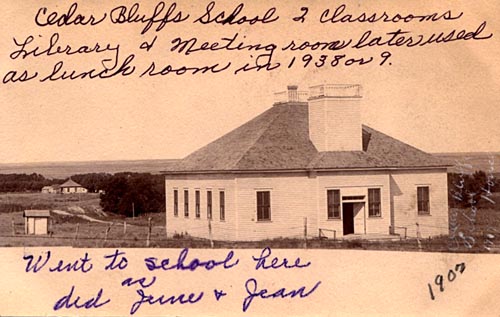 Cedar Bluffs School 2 Classrooms
Library & Meeting room later used
as lunch room in 1938 or 9.
Went to school here
as
did June & Jean
1907